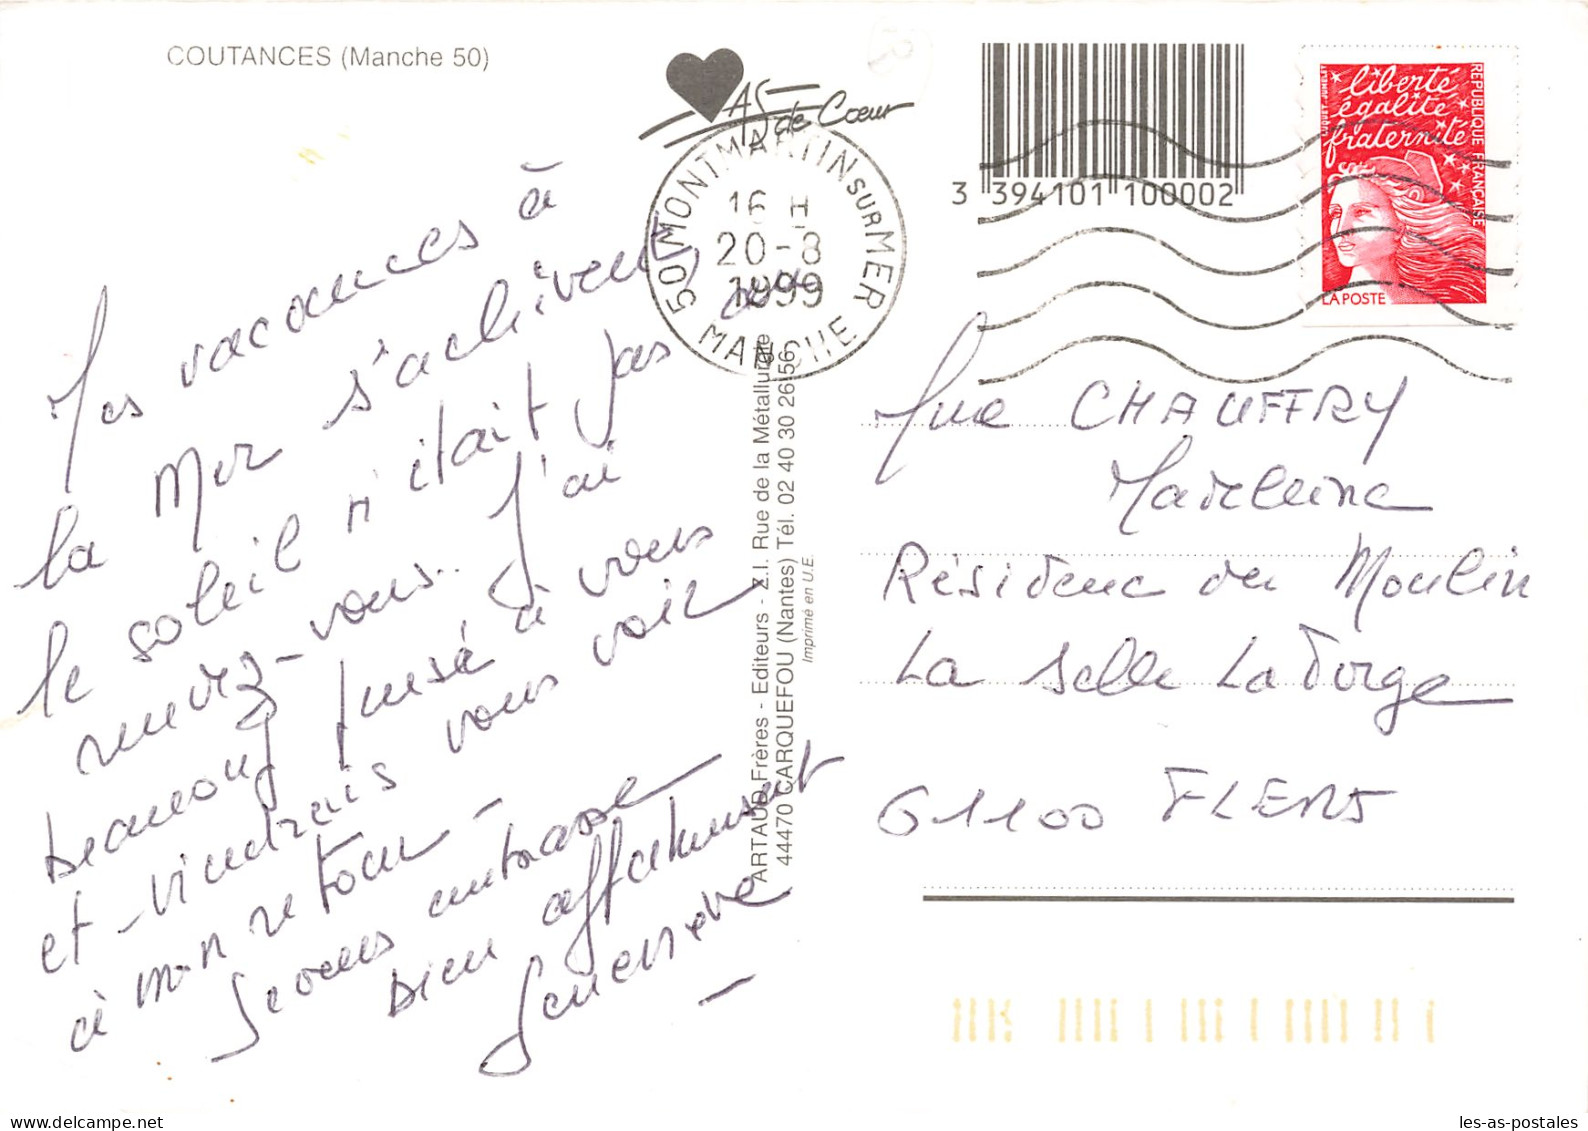 COUTANCES (Manche 50)
AS de Cœur
Mes vacances à
la Mer s'achèvent
le soleil n'était pas au
rendez-vous. J'ai
beaucoup pensé à vous
et viendrais vous voir
à mon retour -
Je vous embrasse
bien affectueusement
Geneviève
ARTAUD Frères - Editeurs - Z.I. Rue de la Métallurgie
44470 CARQUEFOU (Nantes) Tél. 02 40 30 26 56
Imprimé en U.E.
50 MONTMARTIN SUR MER
16 H
20-8
1999
MANCHE
3 394101 100002
liberté
égalité
fraternité
RÉPUBLIQUE FRANÇAISE
LUQUET JUMELET
LA POSTE
Mme CHAUFFRY
Madeleine
Résidence du Moulin
La Selle La Forge
61100 FLERS
les-as-postales
delcampe.net